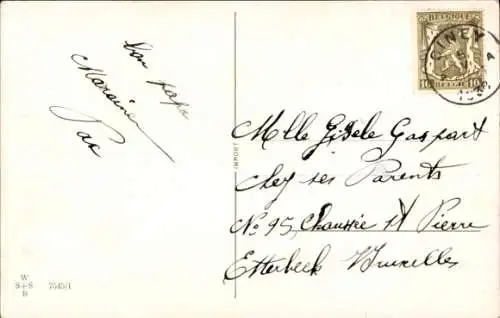 Ton papa
Maraine
Pax
W
S+S
B
7045/1
IMPORT
BELGIQUE
10
10
BELGIE
CINEY
Mlle Gisèle Gaspart
chez ses Parents
No 95, Chaussée St Pierre
Etterbeek Bruxelles